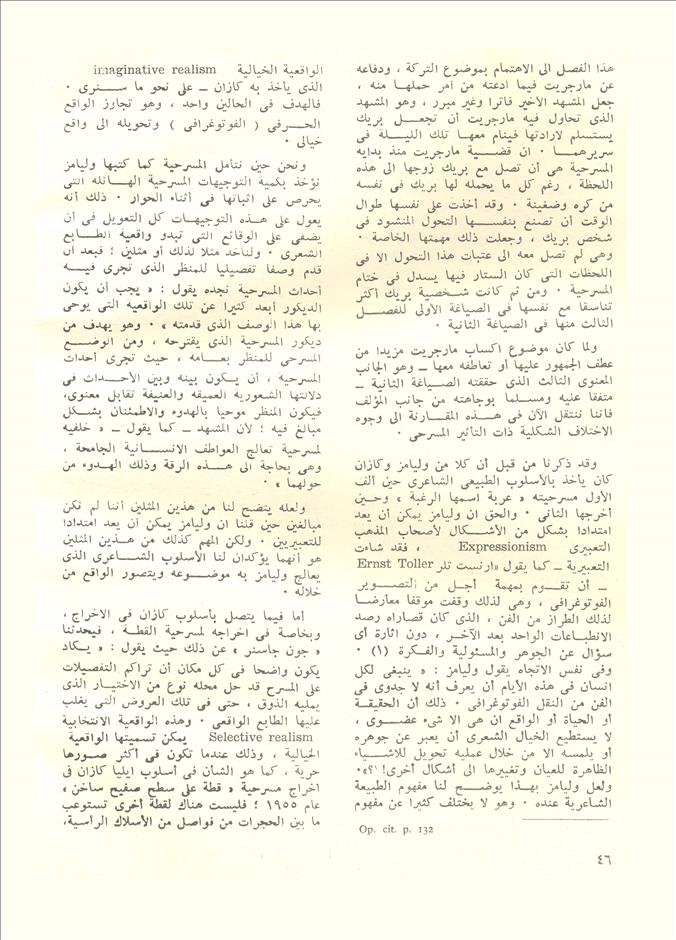 هذا الفصل الى الاهتمام بموضوع التركة ، ودفاعه
عن مارجريت فيما ادعته من أمر حملها منه ،
جعل المشهد الأخير فاترا وغير مبرر ، وهو المشهد
الذى تحاول فيه مارجريت أن تجعــل بريك
يستسلم لارادتها فينام معهـا تلك الليــلة فى
سريرهمــا ٠ ان قضــية مارجريت منذ بداية
المسرحية هى أن تصل مع بريك زوجها الى هذه
اللحظة ، رغم كل ما يحمله لها بريك فى نفسه
من كره وضغينة ٠ وقد أخذت على نفسها طوال
الوقت أن تصنع بنفســها التحول المنشود فى
شخص بريك ، وجعلت ذلك مهمتها الخاصة ٠
وهى لم تصل معه الى عتبات هذا التحول الا فى
اللحظات التى كان الستار فيها يسدل فى ختام
المسرحية ٠ ومن ثم كانت شــخصية بريك أكثر
تناسقا مع نفسها فى الصياغة الأولى للفصــل
الثالث منها فى الصياغة الثانية ٠
ولما كان موضوع اكساب مارجريت مزيدا من
عطف الجمهور عليها أو تعاطفه معها ــ وهو الجانب
المعنوى الثالث الذى حققته الصــياغة الثانية ــ
متفقا عليه ومسـلما بوجاهته من جانب المؤلف
فاننا ننتقل الآن فى هــذه المقــارنة الى وجوه
الاختلاف الشكلية ذات التأثير المسرحى ٠
وقد ذكرنا من قبل أن كلا من وليامز وكازان
كان يأخذ بالأسلوب الطبيعى الشاعرى حين ألف
الأول مسرحيته « عربة اسمها الرغبة » وحــين
أخرجها الثانى ٠ والحق ان وليامز يمكن أن يعد
امتدادا بشكل من الأشــكال لأصحاب المذهب
التعبيرى Expressionism ، فقد شاءت
التعبيرية ــ كما يقول «ارنست تلر Ernst Toller
ــ أن تقــوم بمهمة أجــل من التصــوير
الفوتوغرافى ، وهى لذلك وقفت موقفا معارضا
لذلك الطراز من الفن ، الذى كان قصاراه رصد
الانطبـاعات الواحد بعد الآخــر ، دون اثارة أى
سؤال عن الجوهر والمسئولية والفكرة (١) ٠
وفى نفس الاتجاه يقول وليامز : « ينبغى لكل
انسان فى هذه الأيام أن يعرف أنه لا جدوى فى
الفن من النقل الفوتوغرافى ٠ ذلك أن الحقيقــة
أو الحياة أو الواقع ان هى الا شىء عضــوى ،
لا يستطيع الخيال الشعرى أن يعبر عن جوهره
أو يلمسه الا من خلال عملية تحويل للأشــياء
الظاهرة للعيان وتغييرها الى أشكال أخرى!؟»٠
ولعل وليامز بهــذا يوضــح لنا مفهوم الطبيعة
الشاعرية عنده ٠ وهو لا يختلف كثيرا عن مفهوم
Op. cit. p. 132
الواقعية الخيالية imaginative realism
الذى يأخذ به كازان ــ على نحو ما ســنرى ٠
فالهدف فى الحالين واحد ، وهو تجاوز الواقع
الحــرفى ( الفوتوغرافى ) وتحويله الى واقع
خيالى ٠
ونحن حين نتأمل المسرحية كما كتبها وليامز
نؤخذ بكمية التوجيهات المسرحية الهــائلة التى
يحرص على اثباتها فى أثناء الحوار ٠ ذلك أنه
يعول على هــذه التوجيهات كل التعويل فى أن
يضفى على الوقائع التى تبدو واقعية الطــابع
الشعرى ٠ ولنأخذ مثلا لذلك أو مثلين ؛ فبعد أن
قدم وصفا تفصيليا للمنظر الذى تجرى فيــه
أحداث المسرحية نجده يقول : « يجب أن يكون
الديكور أبعد كثيرا عن تلك الواقعية التى يوحى
بها هذا الوصف الذى قدمته » ٠ وهو يهدف من
ديكور المسرحية الذى يقترحه ، ومن الوضــع
المسرحى للمنظر بعــامة ، حيث تجرى أحداث
المسرحية ، أن يــكون بينه وبين الأحــداث فى
دلالتها الشعورية العميقة والعنيفة تقابل معنوى،
فيكون المنظر موحيا بالهدوء والاطمئنان بشــكل
مبالغ فيه ؛ لأن المشهد ــ كما يقول ــ « خلفية
لمسرحية تعالج العواطف الانســانية الجامحة ،
وهى بحاجة الى هــذه الرقة وذلك الهدوء من
حولهما » ٠
ولعله يتضح لنا من هذين المثلين أننا لم نكن
مبالغين حين قلنا ان وليامز يمكن أن يعد امتدادا
للتعبيريين ٠ ولكن المهم كذلك من هــذين المثلين
هو أنهما يؤكدان لنا الأسلوب الشــاعرى الذى
يعالج وليامز به موضــوعه ويتصور الواقع من
خلاله ٠
أما فيما يتصل بأسلوب كازان فى الاخراج ،
وبخاصة فى اخراجه لمسرحية القطــة ، فيحدثنا
« جون جاسنر » عن ذلك حيث يقول : « يــكاد
يكون واضحا فى كل مكان أن تراكم التفصيلات
على المسرح قد حل محله نوع من الاختيار الذى
يمليه الذوق ، حتى فى تلك العروض التى يغلب
عليها الطابع الواقعى ٠ وهذه الواقعية الانتخابية
Selective realism يمكن تسميتها الواقعية
الخيالية ، وذلك عندما تكون فى أكثر صــورها
حرية ، كما هو الشأن فى أسلوب ايليا كازان فى
اخراج مسرحية « قطة على سطح صفيح ساخن »
عام ١٩٥٥ ؛ فليست هناك لقطة أخرى تستوعب
ما بين الحجرات من فواصل من الأسلاك الرأسية،
٤٦